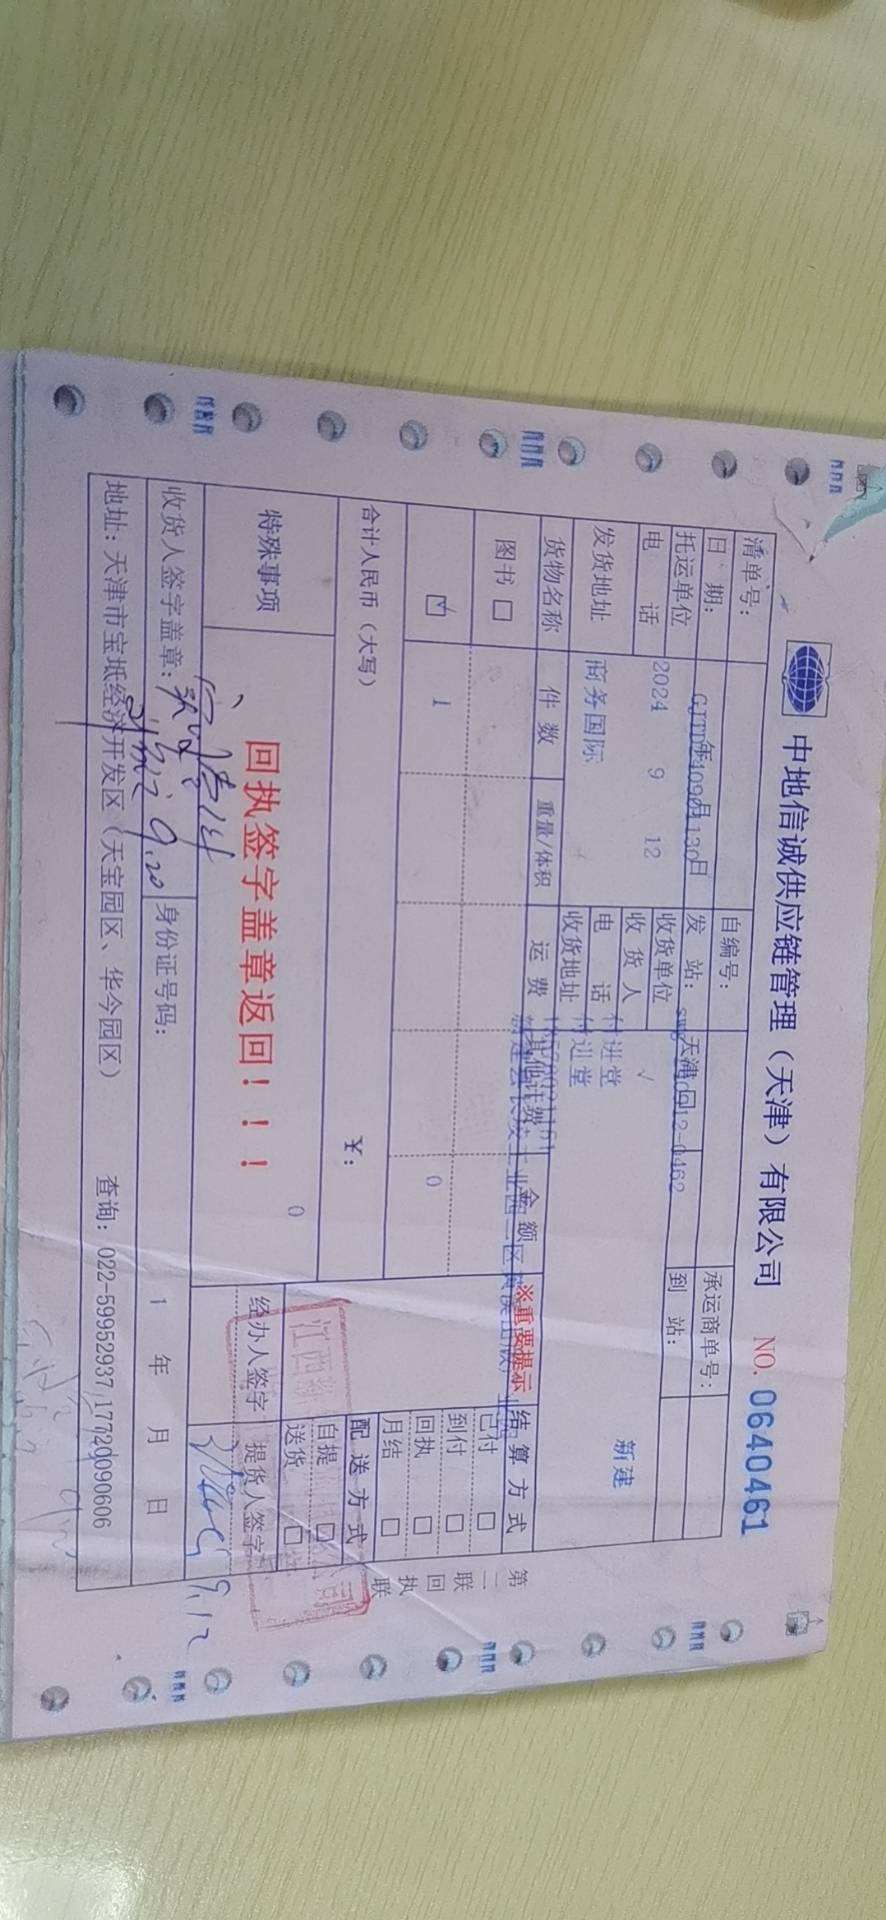 中地信诚供应链管理（天津）有限公司 NO. 0640461
清单号： 自编号： 承运商单号：
日 期： 年 月 日 发 站： 天津 到 站：
托运单位 收货单位
2024 9 12
电 话 收 货 人 √ 新建
发货地址 商务国际 电 话 付进堂
收货地址 付进堂
货物名称 件 数 重量/体积 运 费 其他证费 金 额 ※重要提示 结 算 方 式
图书 □ 已付 □
到付 □
☑ 1 0 回执 □
月结 □
合计人民币（大写） ￥： 配 送 方 式
自提 □
特殊事项 0 送货 □
回执签字盖章返回！！！
经办人签字 提货人签字
9.12
收货人签字盖章： 9.20 身份证号码： 1 年 月 日
地址：天津市宝坻经济开发区（天宝园区、华今园区） 查询：022-59952937 17720090606
第二联 回执联